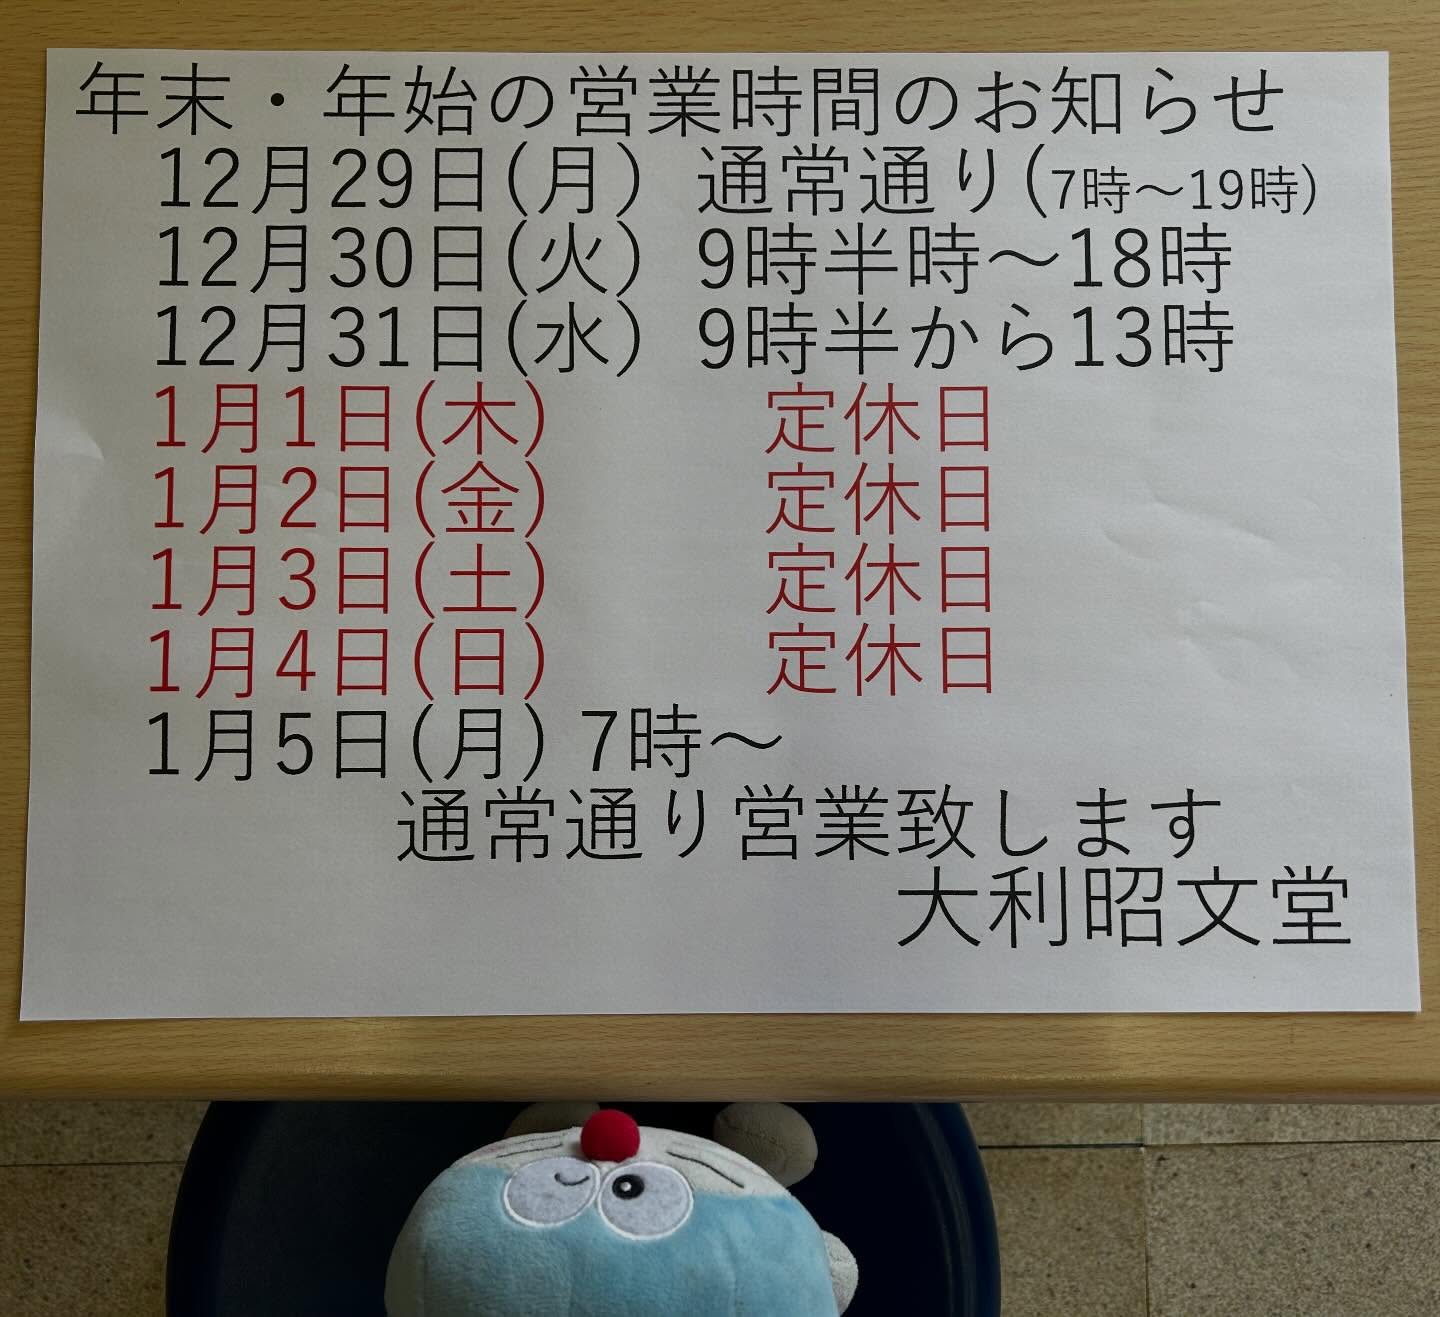 年末・年始の営業時間のお知らせ
12月29日(月) 通常通り(7時～19時)
12月30日(火) 9時半時～18時
12月31日(水) 9時半から13時
1月1日(木) 定休日
1月2日(金) 定休日
1月3日(土) 定休日
1月4日(日) 定休日
1月5日(月) 7時～
通常通り営業致します
大利昭文堂